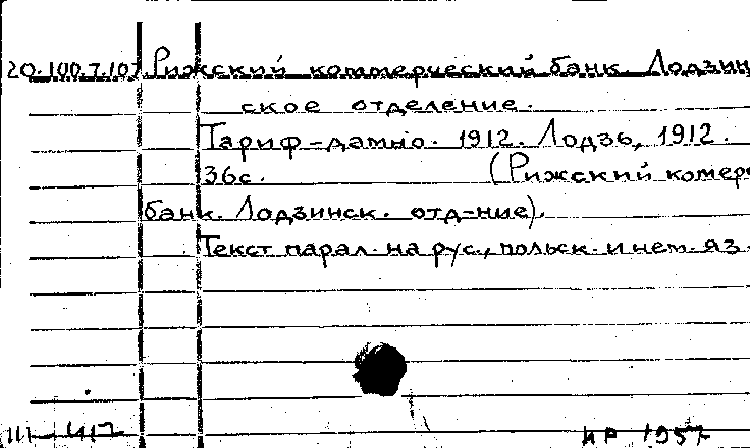 20.100.7.107 Рижский коммерческий банк. Лодзин
ское отделение.
Тариф-дамно. 1912. Лодзь, 1912.
36с. (Рижский комер
банк. Лодзинск. отд-ние).
Текст парал. на рус., польск. и нем. яз.
ИР 1957